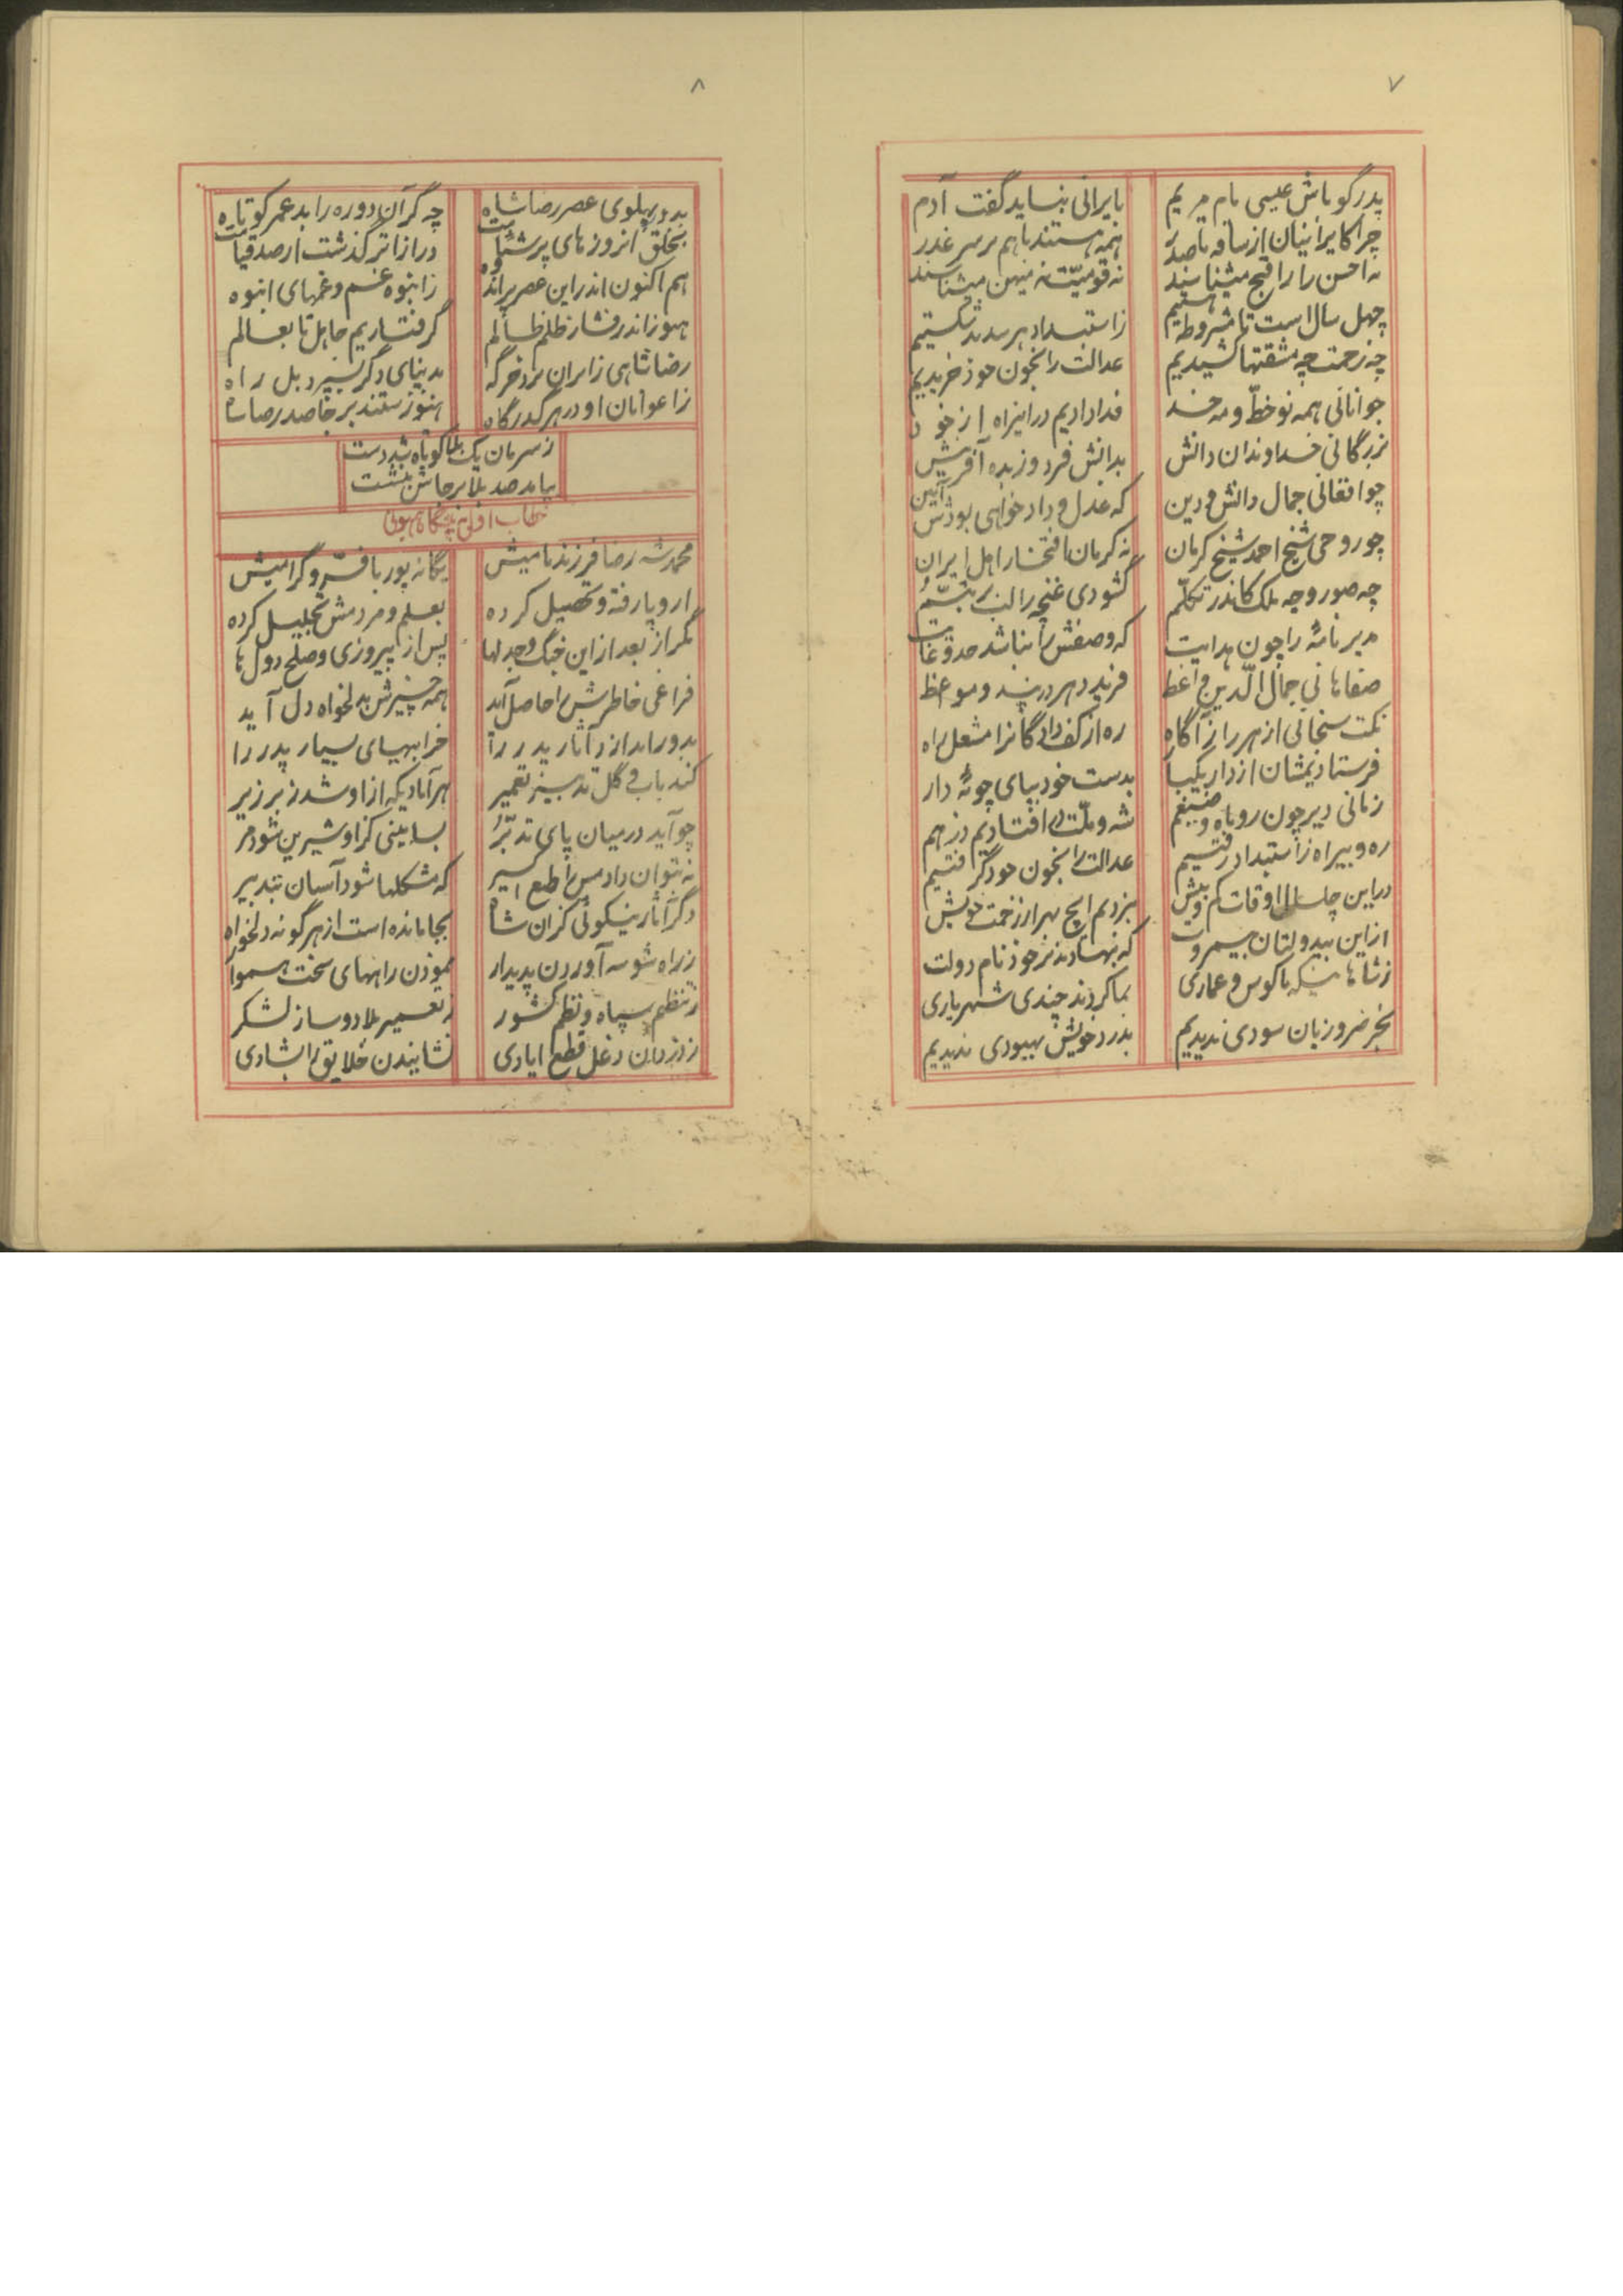 ۷
پدر گو باش عیسی مام مریم
بایرانی نباید گفت آدم
چرا کایرانیان از ساده تا صدر
همه هستند با هم بر سر غدر
نه احسن را ز اقبح میشناسند
نه قومیّت نه میهن میشناسند
چهل سال است تا مشروطه هستیم
ز استبداد هر سد بد شکستیم
چه زحمت چه مشقتها کشیدیم
عدالت را بخون خود خریدیم
جوانانی همه نو خطّ و مه خد
فدا دادیم در اینراه از خود
بزرگانی خداوندان دانش
بدانش فرد و زبده آفرینش
چو افغانی جمال دانش و دین
که عدل و داد خواهی بودش آیین
چو روحی شیخ احمد شیخ کرمان
نه کرمان افتخار اهل ایران
چه صور و چه ملک کاندر تکلّم
گشودی غنچه را لب بر تبسّم
مدیر نامهٔ را چون هدایت
که وصفش را نباشد حد و غایت
صفاهانی جمال الدّین واعظ
فرید دهر در پند و مواعظ
نکت سنجانی از هر راز آگاه
ره از کف دادگانرا مشعل راه
فرستادیمشان از دار یکسر
بدست خود بپای چوبهٔ دار
زمانی دیر چون روباه و ضیغم
شه و ملّت در افتادیم در هم
ره و بیراه ز استبداد رفتیم
عدالت را بخون خود گرفتیم
در این چل سال اوقات کم و بیش
نبردیم ایچ بهر از زحمت خویش
از این بیدولتان بیمروت
که بنهادند بر خود نام دولت
ز شاهانیکه با کوس و عماری
بما کردند چندی شهریاری
بجز ضرر و زیان سودی ندیدیم
بدرد خویش بهبودی ندیدیم
۸
بدور پهلوی عصر رضا شاه
چه گر آن دوره را بد عمر کوتاه
بخلق آنروزهای پر شئامت
درازاتر گذشت از صد قیامت
هم اکنون اندر این عصر پر اندوه
ز انبوه غم و غمهای انبوه
هنوز اندر فشار ظلم ظالم
گرفتاریم جاهل تا بعالم
رضا شاهی ز ایران برد خرگه
بدنیای دگر بسپرد بل راه
ز اعوانان او در هر گذرگاه
هنوز هستند بر جا صد رضا شاه
ز سرمان یک بلا کوتاه شد دست
بیامد صد بلا بر جاش بنشست
خطاب اول به پیشگاه همایونی
محمد شه رضا فرزند نامیش
یگانه پور با فرّ و گرامیش
اروپا رفته و تحصیل کرده
بعلم و مردمش تجلیل کرده
مگر از بعد از این جنگ و جدلها
پس از پیروزی و صلح دول ها
فراغی خاطرش را حاصل آید
همه چیزش بدلخواه دل آید
بدور اندازد آثار پدر را
خرابیهای بسیار پدر را
کند با آب و گل تدبیر تعمیر
هر آبادیکه از او شد زبر زیر
چو آید در میان پای تدبّر
بسا بینی کز او شیرین شود مر
نه نتوان داد مس را طبع اکسیر
که مشکلها شود آسان بتدبیر
دگر آثار نیکوئی کز آن شاه
بجا مانده است از هر گونه دلخواه
ز راه شوسه آوردن پدیدار
نمودن راههای سخت هموار
ز تنظیم سپاه و نظم کشور
ز تعمیر بلاد و ساز لشکر
ز دزدان دغل قطع ایادی
نشانیدن خلایق را بشادی